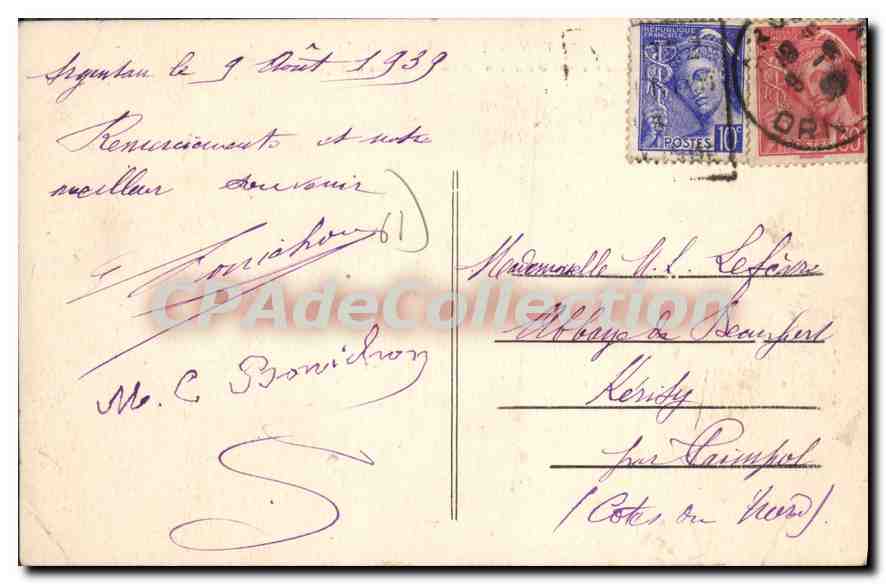 Argentan le 9 Août 1939
Remerciements et notre
meilleur souvenir
Bonichon
61
M. C Bonichon
REPUBLIQUE
FRANÇAISE
POSTES 10c
POSTES 30
ORN
Mademoiselle M. L. Lefèvre
Abbaye de Beauport
Kérity
par Paimpol
(Cotes du Nord).
CPAdeCollection